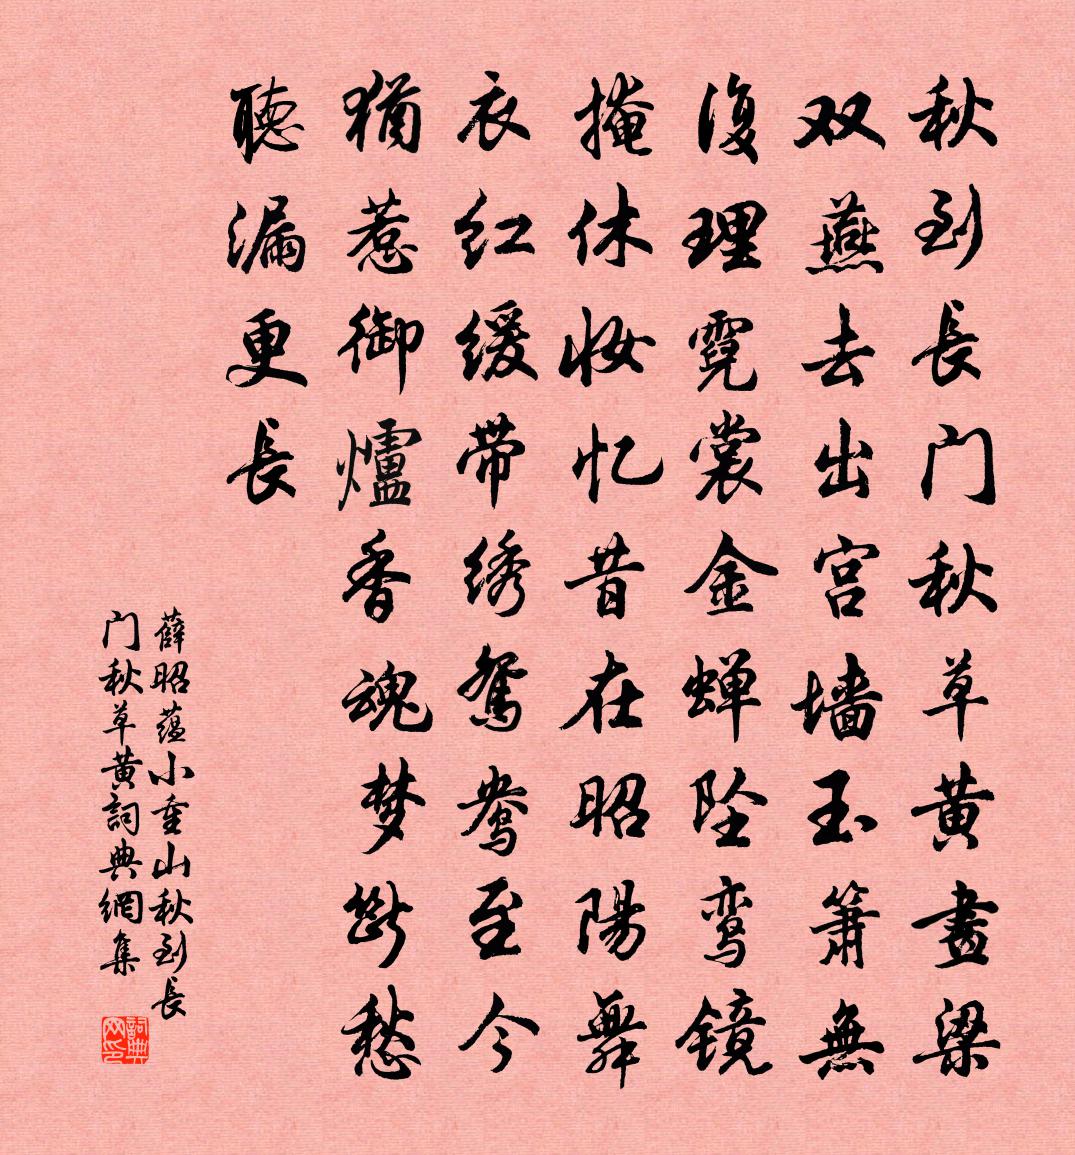 秋到長门秋草黄畫梁
双燕去出宫墙玉箫無
復理霓裳金蝉坠鸾镜
掩休妆忆昔在昭陽舞
衣红缓带绣鸳鸯至今
猶惹御爐香魂梦断愁
聽漏更長
薛昭蕴小重山秋到長
门秋草黄詞典網集
詞典网印